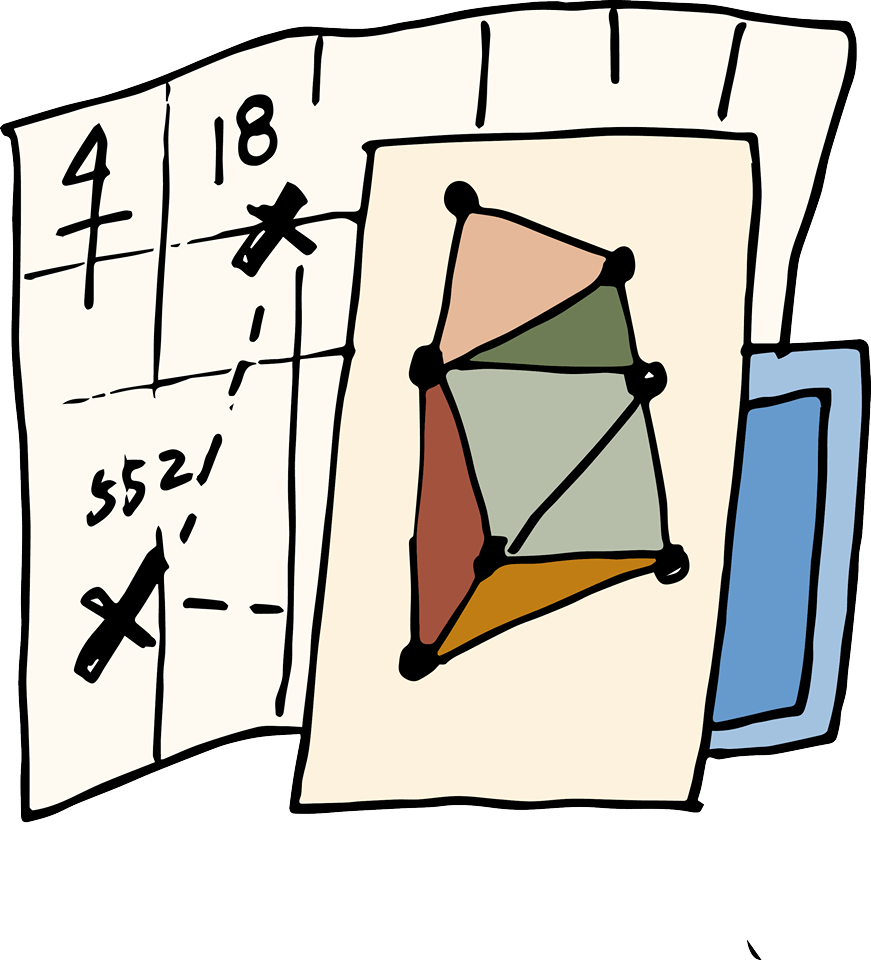 4
18
5521